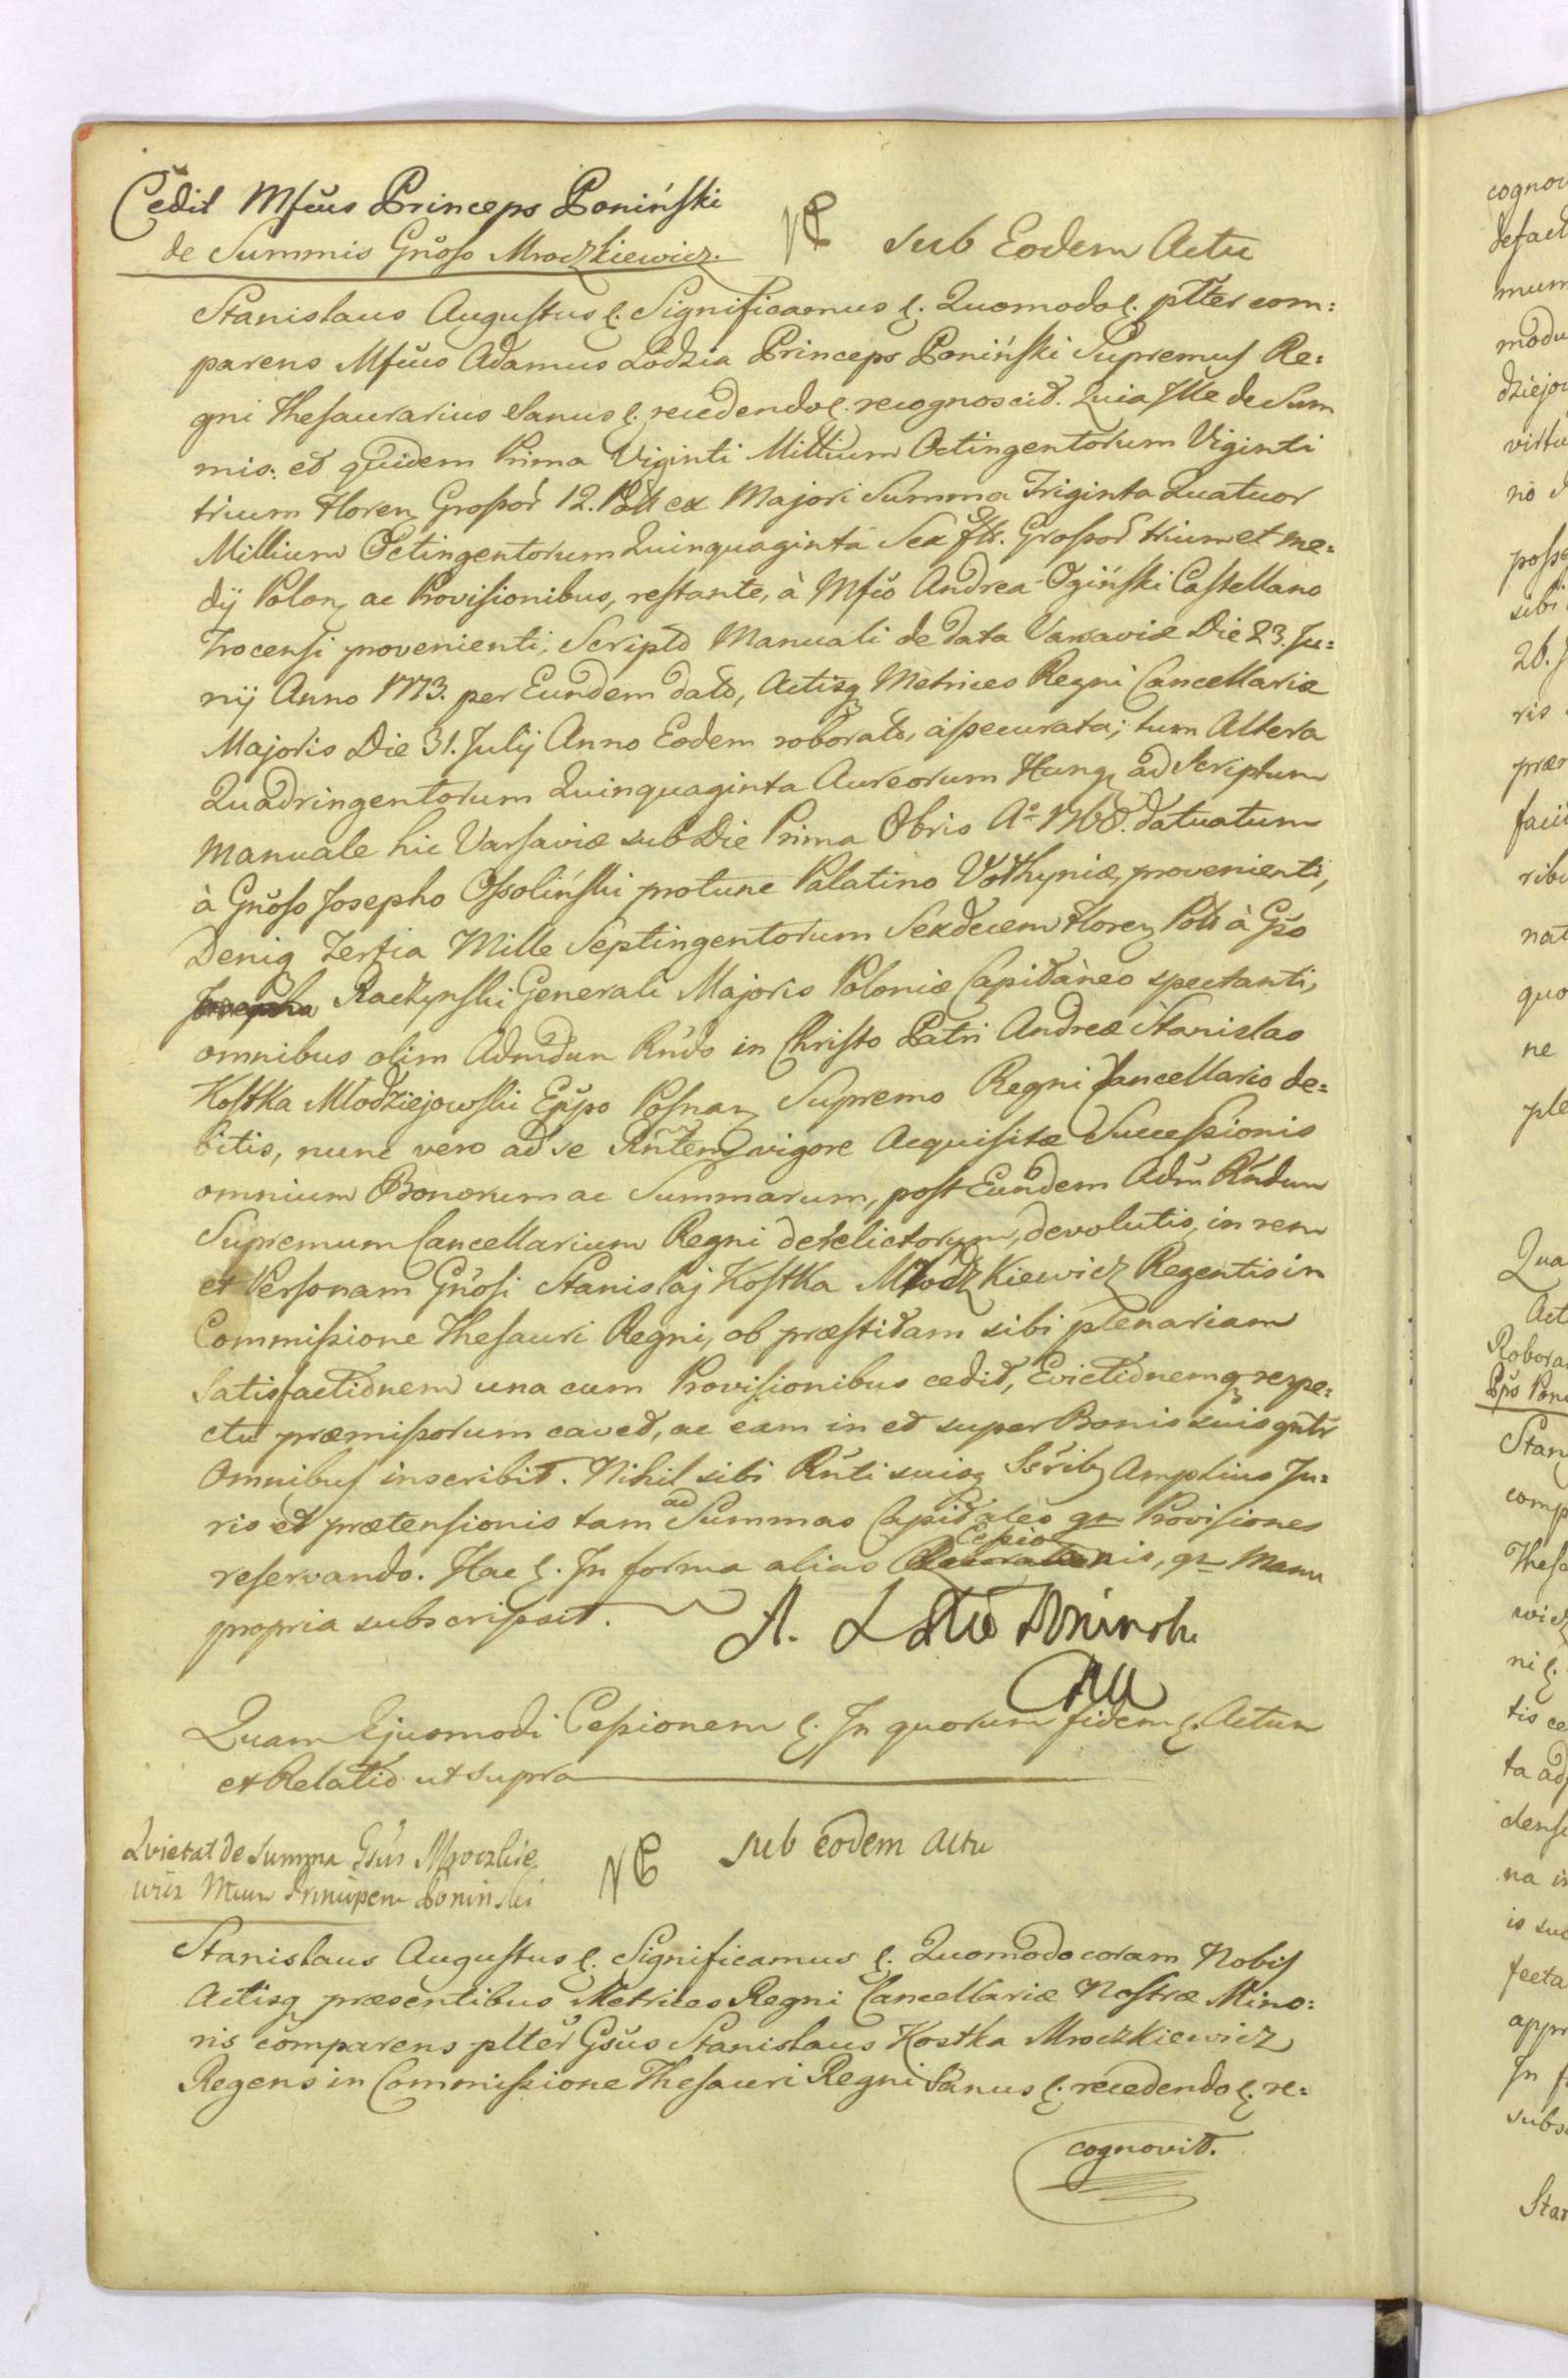 Cedit Mfcus Princeps Poniński
de Summis Gnoso Mroczkiewicz.
Sub Eodem Actu
Stanislaus Augustus &. Significamus &. Quomodo &. plter com:
parens Mfcus Adamus Lodzia Princeps Poniński Supremus Re:
gni Thesaurarius Sanus &. recedendo &. recognoscit. Quia Ille de Sum
mis: et quidem Prima Viginti Millium Octingentorum Viginti
trium Floren Grossor 12. Poll ex Majori Summa Triginta Quatuor
Millium Octingentorum Quinquaginta Sex flr. Grossor trium et me:
dij Polon, ac Provisionibus, restante, à Mfco Andrea Ogiński Castellano
Trocensi provenienti, Scripto Manuali de data Varsaviæ Die 23. Ju:
nij Anno 1773. per Eundem dato, Actisq Metrices Regni Cancellariæ
Majoris Die 31. Julij Anno Eodem roborato, assecurata; tum Altera
Quadringentorum Quinquaginta Aureorum Hung, ad Scriptum
Manuale hic Varsaviæ sub Die Prima Obris Aº 1768. datuatum
à Gnoso Josepho Ossoliński protunc Palatino Volhyniæ, provenienti,
Deniq Tertia Mille Septingentorum Sexdecem Floren Poll à Gso
Raczynski Generali Majoris Poloniæ Capitaneo spectanti,
omnibus olim Admdum Rndo in Christo Patri Andreæ Stanislao
Kostka Młodziejowski Eppo Posnan Supremo Regni Cancellario de:
bitis, nunc vero ad se Rntem vigore Acquisitæ Successionis
omnium Bonorum ac Summarum, post Eundem Adm Rndum
Supremum Cancellarium Regni derelictorum, devolutis, in rem
et Personam Gnosi Stanislaj Kostka Mroczkiewicz Regentis in
Commissione Thesauri Regni, ob præstitam sibi plenariam
Satisfactionem una cum Provisionibus cedit, Evictionemq respe:
ctu præmissorum cavet, ac eam in et super Bonis suis gntr
Omnibus inscribit. Nihil sibi Rnti suisq Sscrib Amplius Ju:
ris et prætensionis tam ad Summas Capitales qm Provisiones
reservando. Hac &. In forma alias Cessionis, qm Manu
propria subscripsit.
Quam Ejusmodi Cessionem &. In quorum fidem &. Actum
et Relatio ut supra
Quietat de Summa Gsus Mroczkie
wicz Mcum Principem Poniński
Sub eodem actu
Stanislaus Augustus &. Significamus &. Quomodo coram Nobis
Actisq præsentibus Metrices Regni Cancellariæ Nostræ Mino:
ris comparens plter Gsus Stanislaus Kostka Mroczkiewicz
Regens in Commissione Thesauri Regni Sanus &. recedendo &. re:
cognovit.